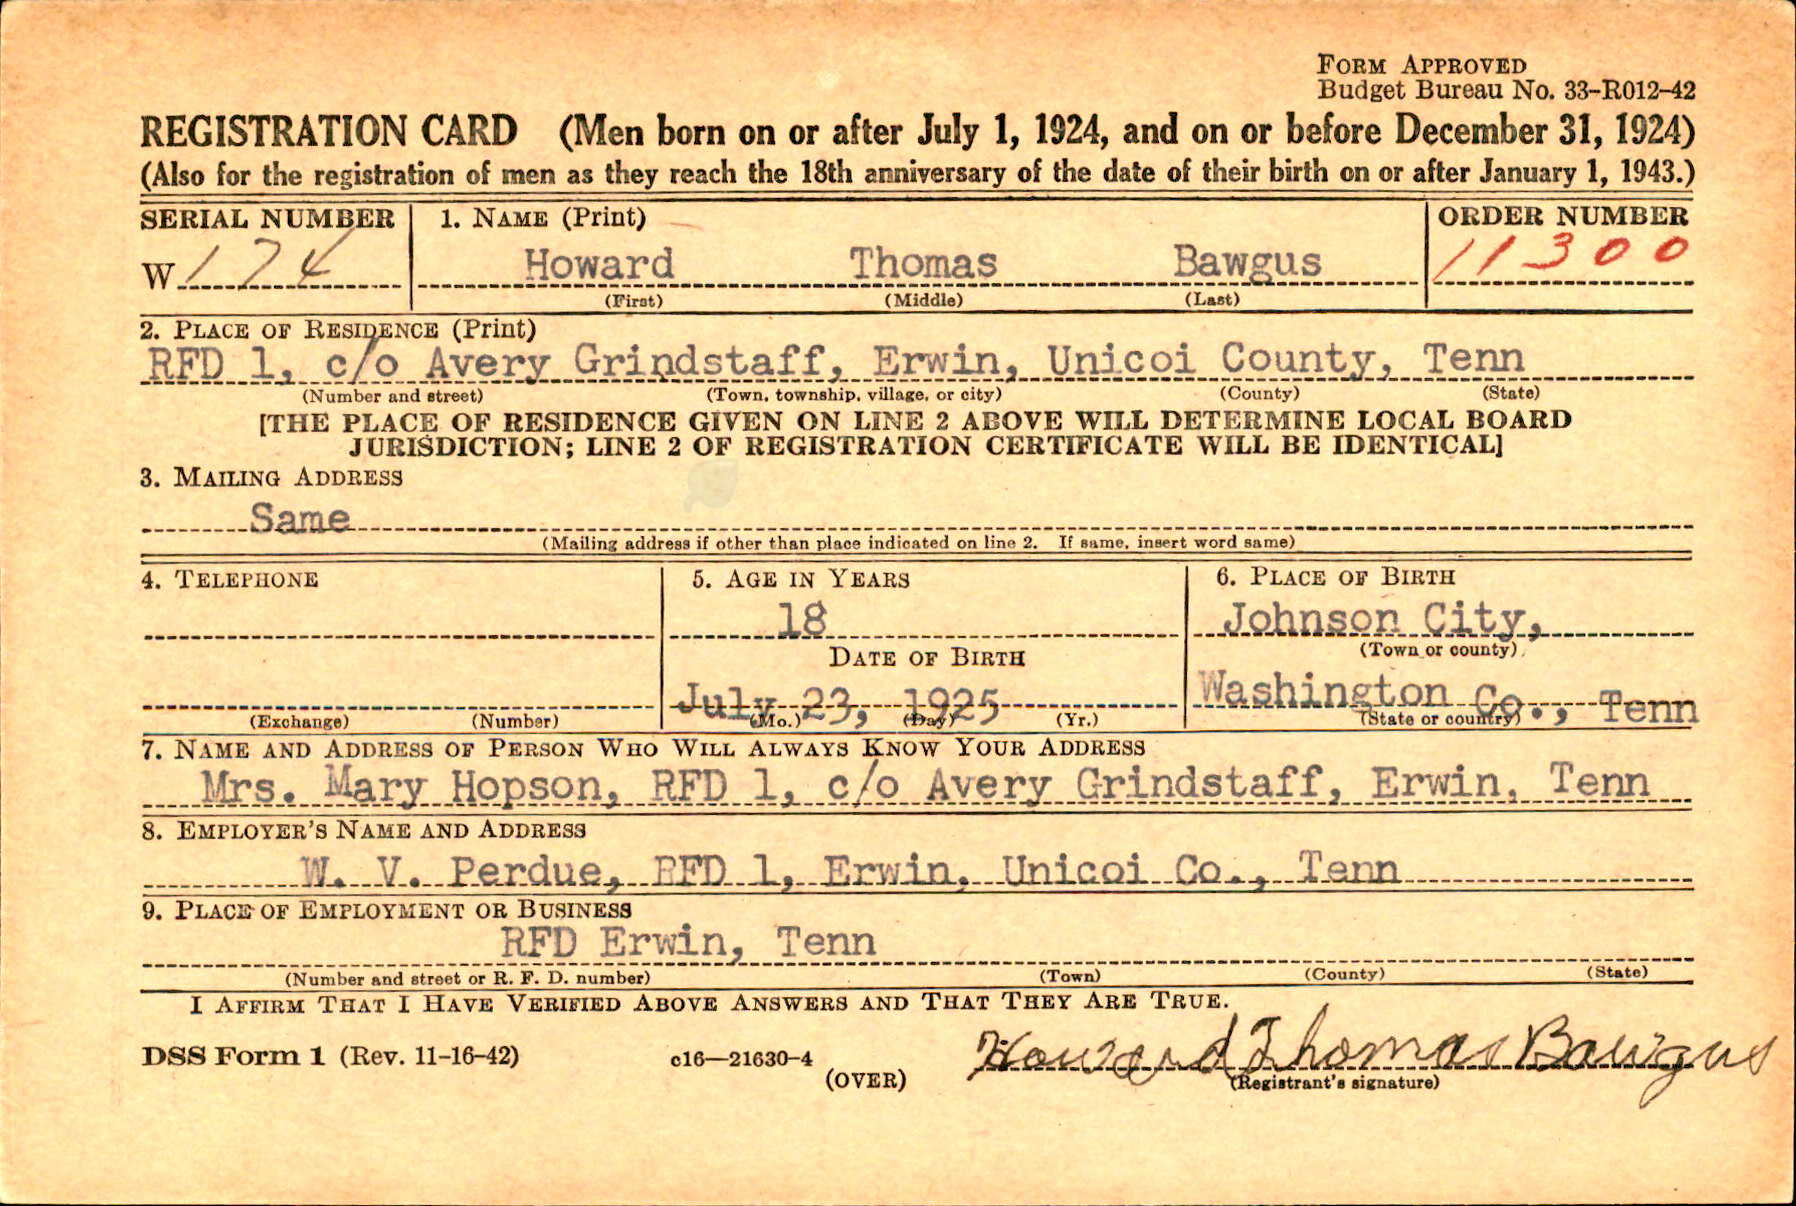 FORM APPROVED
Budget Bureau No. 33-R012-42
REGISTRATION CARD (Men born on or after July 1, 1924, and on or before December 31, 1924)
(Also for the registration of men as they reach the 18th anniversary of the date of their birth on or after January 1, 1943.)
SERIAL NUMBER 1. NAME (Print) ORDER NUMBER
W 174 Howard Thomas Bawgus 11300
(First) (Middle) (Last)
2. PLACE OF RESIDENCE (Print)
RFD 1, c/o Avery Grindstaff, Erwin, Unicoi County, Tenn
(Number and street) (Town, township, village, or city) (County) (State)
[THE PLACE OF RESIDENCE GIVEN ON LINE 2 ABOVE WILL DETERMINE LOCAL BOARD
JURISDICTION; LINE 2 OF REGISTRATION CERTIFICATE WILL BE IDENTICAL]
3. MAILING ADDRESS
Same
(Mailing address if other than place indicated on line 2. If same, insert word same)
4. TELEPHONE 5. AGE IN YEARS 6. PLACE OF BIRTH
18 Johnson City,
DATE OF BIRTH (Town or county)
July 23, 1925 Washington Co., Tenn
(Exchange) (Number) (Mo.) (Day) (Yr.) (State or country)
7. NAME AND ADDRESS OF PERSON WHO WILL ALWAYS KNOW YOUR ADDRESS
Mrs. Mary Hopson, RFD 1, c/o Avery Grindstaff, Erwin, Tenn
8. EMPLOYER'S NAME AND ADDRESS
W. V. Perdue, RFD 1, Erwin, Unicoi Co., Tenn
9. PLACE OF EMPLOYMENT OR BUSINESS
RFD Erwin, Tenn
(Number and street or R. F. D. number) (Town) (County) (State)
I AFFIRM THAT I HAVE VERIFIED ABOVE ANSWERS AND THAT THEY ARE TRUE.
DSS Form 1 (Rev. 11-16-42) c16—21630-4 Howard Thomas Bawgus
(OVER) (Registrant's signature)